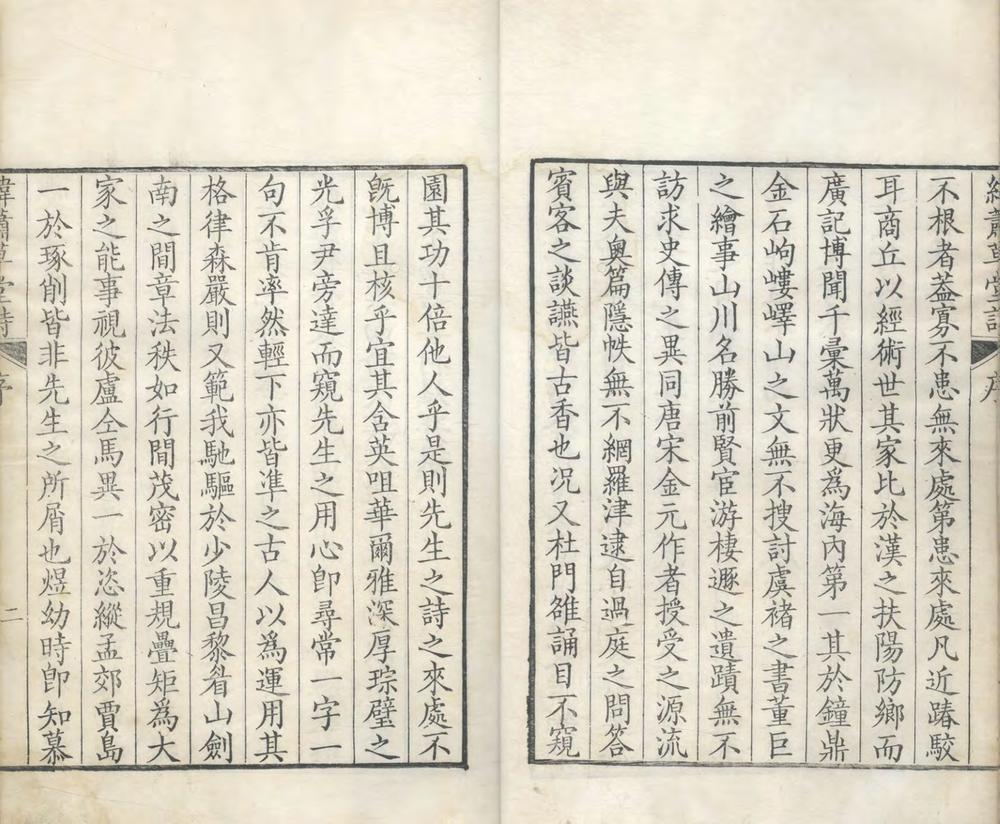 緯蕭草堂詩 序
不根者葢寡不患無來處第患來處凡近踳駮
耳商丘以經術世其家比於漢之扶陽防鄉而
廣記博聞千彙萬狀更為海內第一其於鐘鼎
金石岣嶁嶧山之文無不搜討虞褚之書董巨
之繪事山川名勝前賢宦游棲遯之遺蹟無不
訪求史傳之異同唐宋金元作者授受之源流
與夫奧篇隱帙無不網羅津逮自過庭之問答
賓客之談讌皆古香也况又杜門雒誦目不窺
園其功十倍他人乎是則先生之詩之來處不
既博且核乎宜其含英咀華爾雅深厚琮璧之
光孚尹旁達而窺先生之用心卽尋常一字一
句不肯率然輕下亦皆準之古人以為運用其
格律森嚴則又範我馳驅於少陵昌黎眉山劍
南之間章法秩如行間茂密以重規疊矩為大
家之能事視彼盧仝馬異一於恣縱孟郊賈島
一於琢削皆非先生之所屑也煜幼時卽知慕
緯蕭草堂詩 序 二